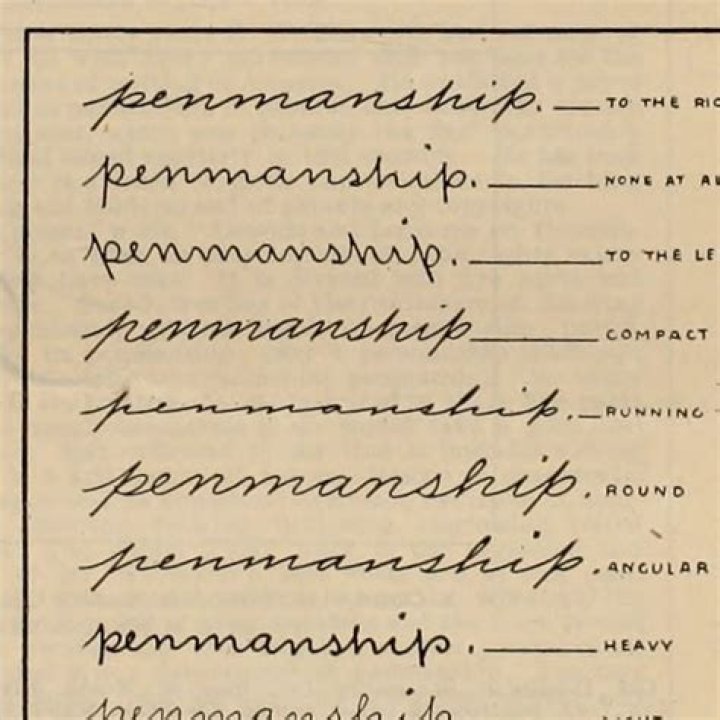 penmanship. TO THE RIG
penmanship. NONE AT AL
penmanship. TO THE LE
penmanship COMPACT
penmanship. RUNNING
penmanship. ROUND
penmanship. ANGULAR
penmanship. HEAVY
penmanship